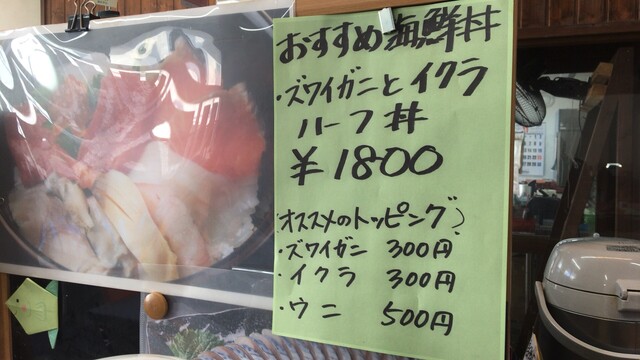 おすすめ海鮮丼
・ズワイガニとイクラ
ハーフ丼
¥1800
(オススメのトッピング)
・ズワイガニ 300円
・イクラ 300円
・ウニ 500円